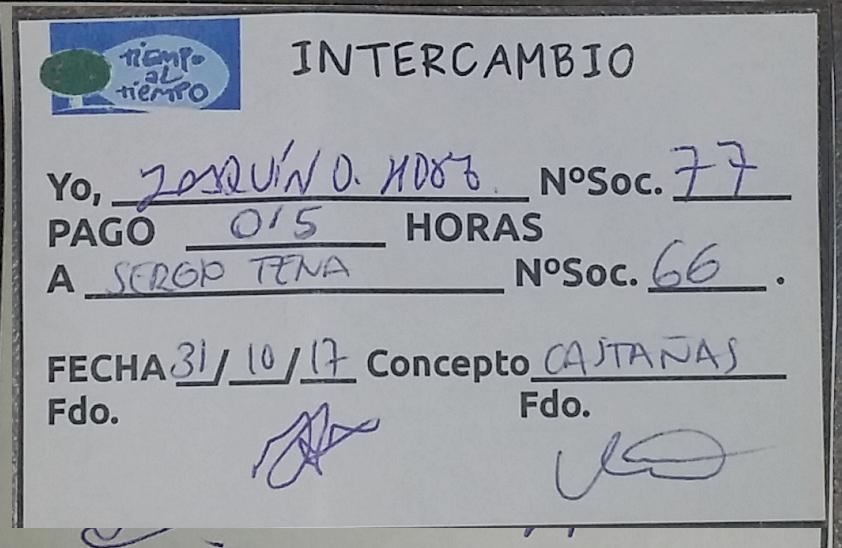 tiempo
al
tiempo
INTERCAMBIO
Yo, JOAQUÍN D. NºSoc. 77
PAGO 0'5 HORAS
A SERGIO TENA NºSoc. 66.
FECHA 31/10/17 Concepto CASTAÑAS
Fdo. Fdo.